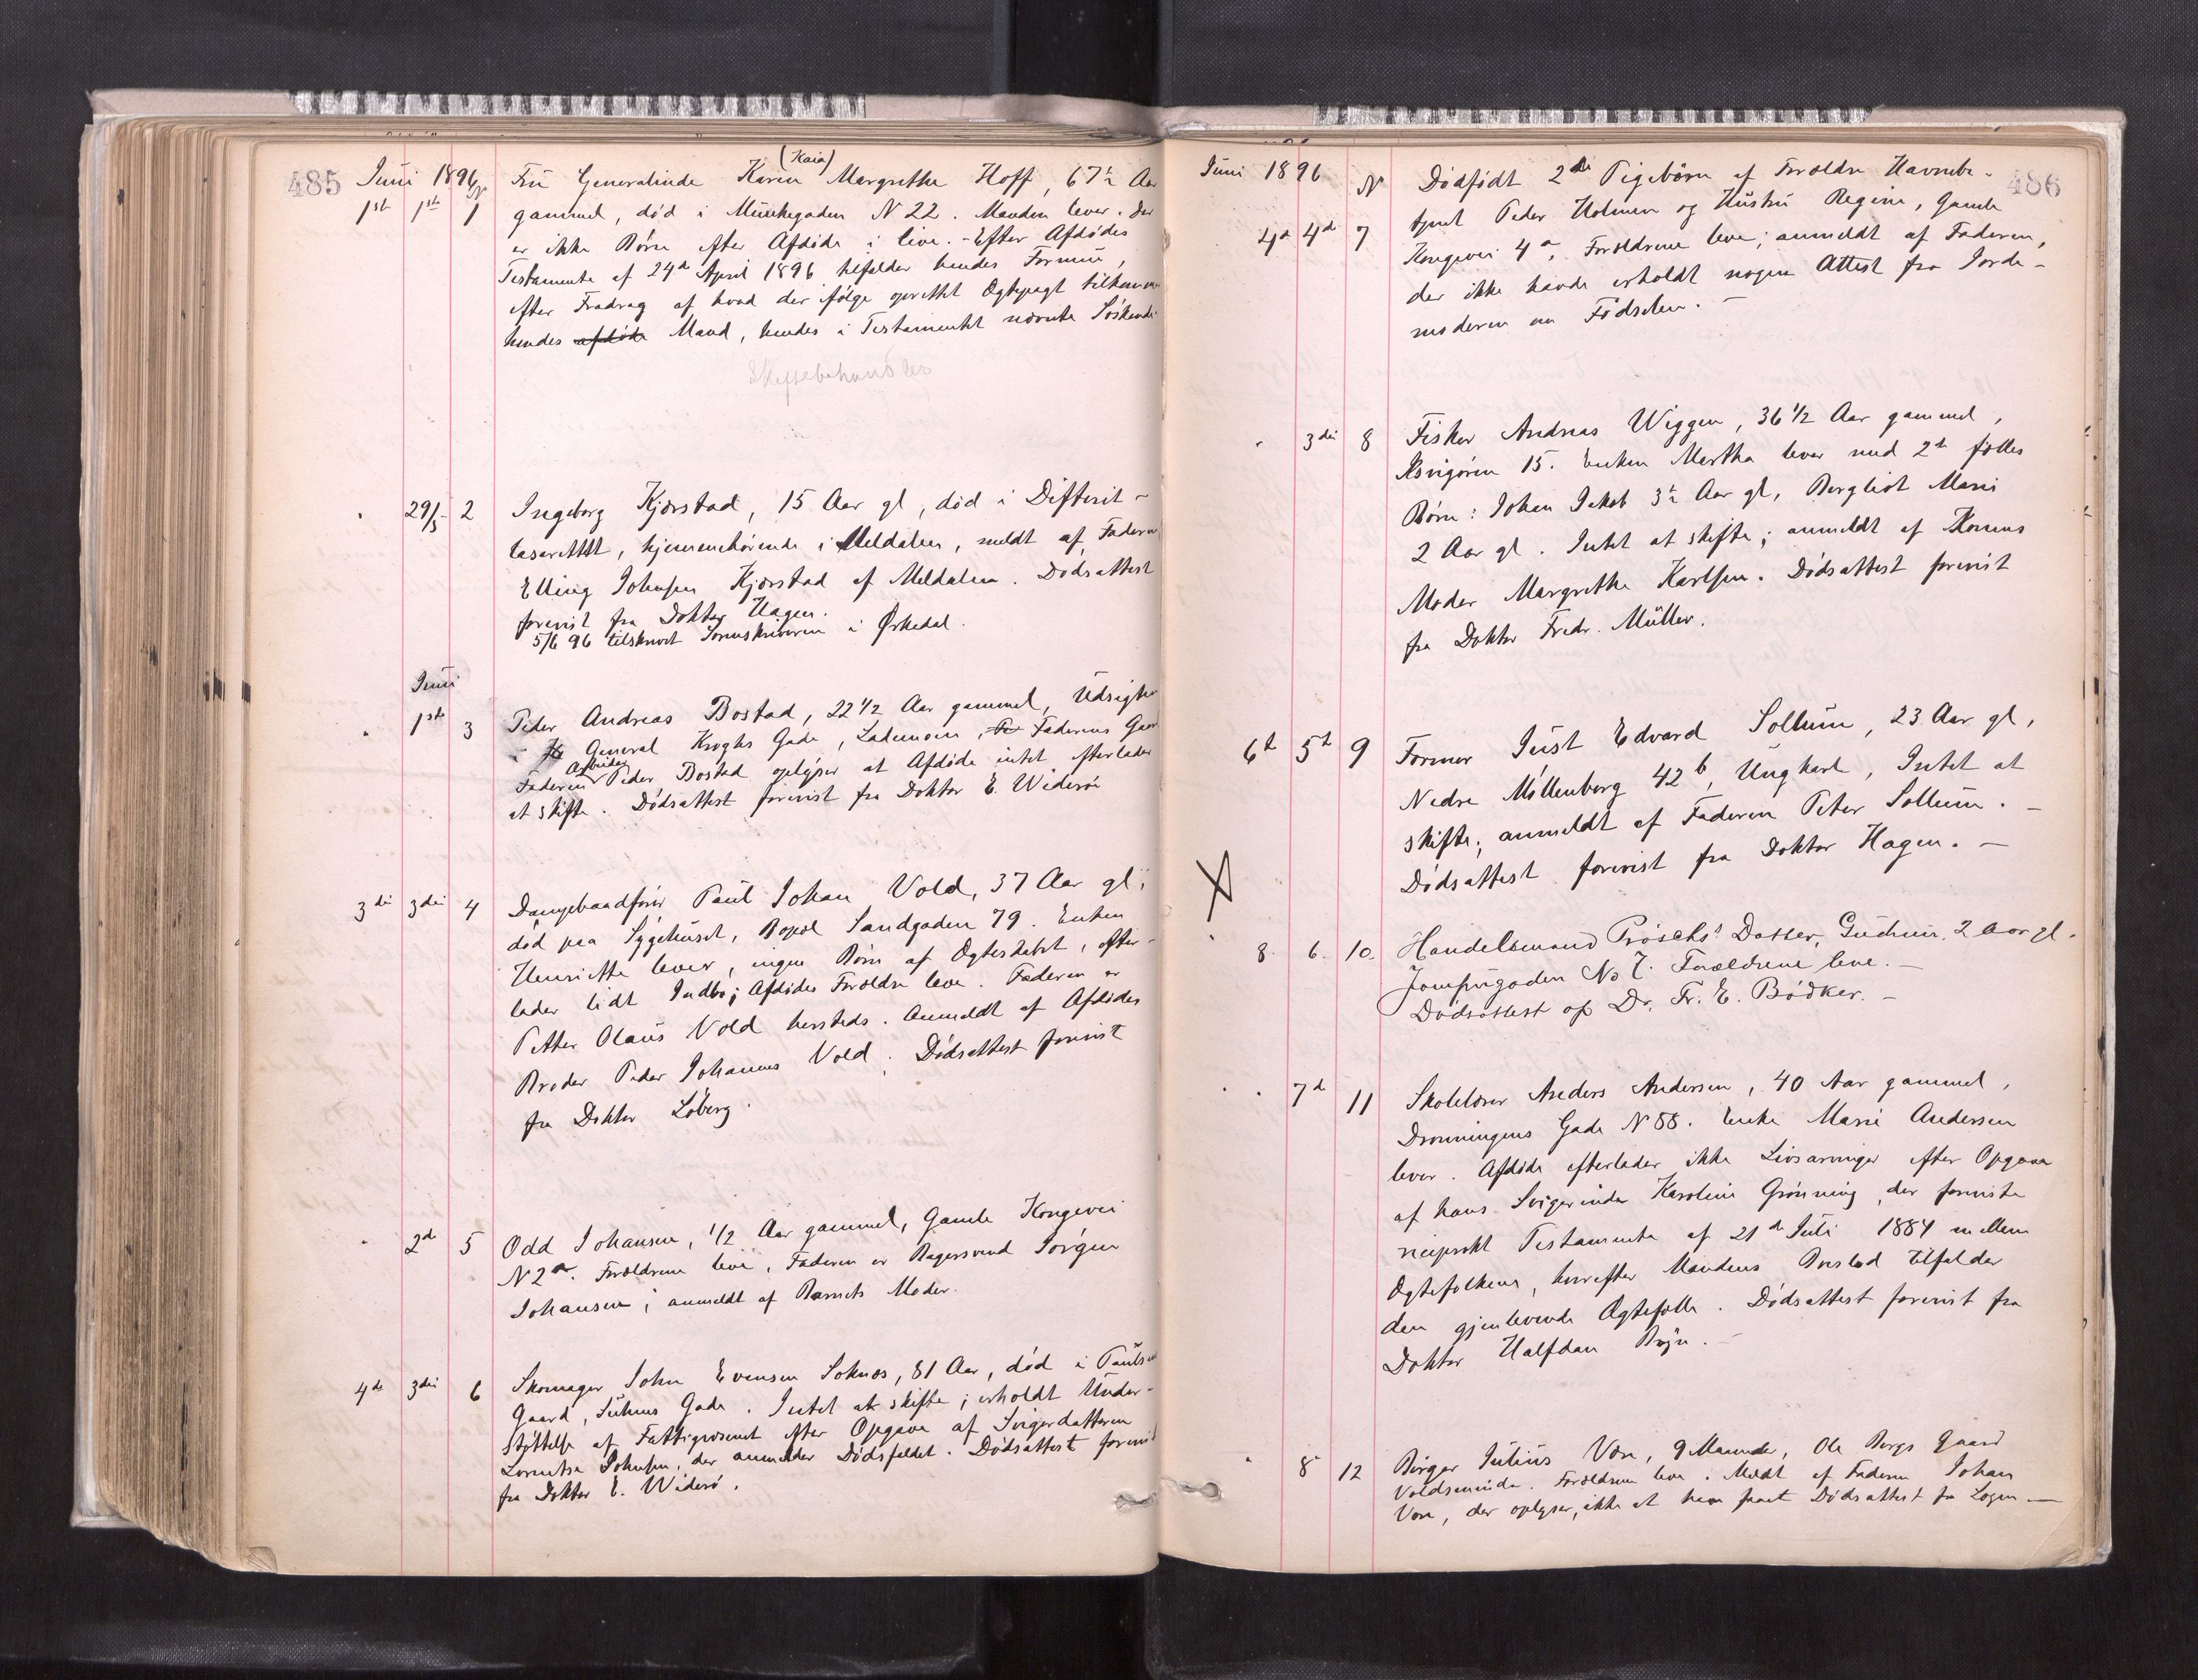 485 Juni 1896
(Kaia)
1ste 1ste N 1 Fru Generalinde Karen Margrethe Hoff, 67½ Aar
gammel, død i Munkegaden N 22. Manden lever. Der
er ikke Børn efter Afdøde i live. - Efter Afdødes
Testamente af 24de April 1896 tilfalder hendes Formue,
efter Fradrag af hvad der ifølge oprettet Ægtepagt tilkommer
hendes afdøde Mand, hendes i Testamentet nævnte Søskende
Skiftebehandles
" 29/5 2 Ingeborg Kjørstad, 15 Aar gl, død i Difterit-
lasarettet, hjemmehørende i Meldalen, meldt af Faderen
Elling Johnsen Kjørstad af Meldalen. Dødsattest
forevist fra Doktor Hagen.
5/6 96 tilskrevet Sorenskriveren i Ørkedal.
Juni
" 1ste 3 Peder Andreas Bostad, 22 1/2 Aar gammel, Udsigten
General Kroghs Gade, Lademoen, Faderens Gaard
Arbeider
Faderen Peder Bostad oplyser at Afdøde intet efterlader
at skifte. Dødsattest forevist fra Doktor E. Widerøe
3die 3die 4 Dampbaadfører Paul Johan Vold, 37 Aar gl;
død paa Sygehuset, Bopæl Sandgaden 79. Enken
Henriette lever, ingen Børn af Ægteskabet, efter-
lader lidt Indbo; Afdødes Forældre leve. Faderen er
Petter Olaus Vold hersteds. Anmeldt af Afdødes
Broder Peder Johannes Vold. Dødsattest forevist
fra Doktor Løberg.
" 2den 5 Odd Johansen, 1/2 Aar gammel, Gamle Kongevei
N 2a. Forældrene leve, Faderen er Bagersvend Jørgen
Johansen; anmeldt af Barnets Moder.
4de 3die 6 Skomager John Evensen Soknæs, 81 Aar, død i Paulsens
Gaard, Suhms Gade. Intet at skifte; erholdt Under-
støttelse af Fattigvæsenet efter Opgave af Svigerdatteren
Lorentse Johnsen, der anmelder Dødsfaldet. Dødsattest forevist
fra Doktor E. Widerø.
Juni 1896 486
N Dødfødt 2de Pigebørn af Forældre Havnebe-
4de 4de 7 tjent Peder Holmen og Hustru Regine, Gamle
Kongevei 4a, Forældrene leve; anmeldt af Faderen,
der ikke havde erholdt nogen Attest fra Jorde-
moderen om Fødselen. -
" 3die 8 Fisker Andreas Wiggen, 36 1/2 Aar gammel,
Ilsvigøren 15. Enken Martha lever med 2de fælles
Børn: Johan Jakob 3½ Aar gl, Bergliot Marie
2 Aar gl. Intet at skifte; anmeldt af Konens
Moder Margrethe Karlsen. Dødsattest forevist
fra Doktor Fredr. Müller.
6te 5te 9 Former Just Edvard Sollum, 23 Aar gl,
Nedre Møllenberg 42b, Ungkarl, Intet at
skifte; anmeldt af Faderen Peter Sollum. -
Dødsattest forevist fra Doktor Hagen. -
X
8. 6. 10. Handelsmand Prösch's Datter, Gudrun, 2 Aar gl.
Jomfrugaden No 7. Forældrene leve. -
Dødsattest af Dr. Fr. E. Bødker. -
" 7de 11 Skolelærer Anders Andersen, 40 Aar gammel,
Dronningens Gade N 58. Enke Marie Andersen
lever. Afdøde efterlader ikke Livsarvinger efter Opgave
af hans Svigerinde Karoline Grønning, der foreviste
reciprokt Testamente af 21de Juli 1884 mellem
Ægtefolkene, hvorefter Mandens Boeslod tilfalder
den gjenlevende Ægtefælle. Dødsattest forevist fra
Doktor Halfdan Bryn. -
" 8de 12 Birger Julius Vöre, 9 Maaneder, Ole Bergs Gaard
Voldsminde. Forældrene leve. Meldt af Faderen Johan
Vöre, der oplyser, ikke at have faaet Dødsattest fra Lægen -